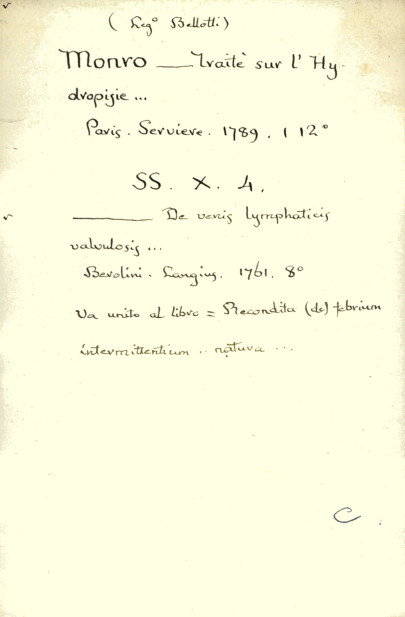 ( Leg° Bellotti)
Monro — Traitè sur l' Hy-
dropisie ...
Paris. Serviere. 1789. 1 12°
SS. X. 4.
——— De venis lymphaticis
valvulosis ...
Berolini. Langius. 1761. 8°
Va unito al libro = Recondita (de) febrium
intermittentium .. natura ...
C